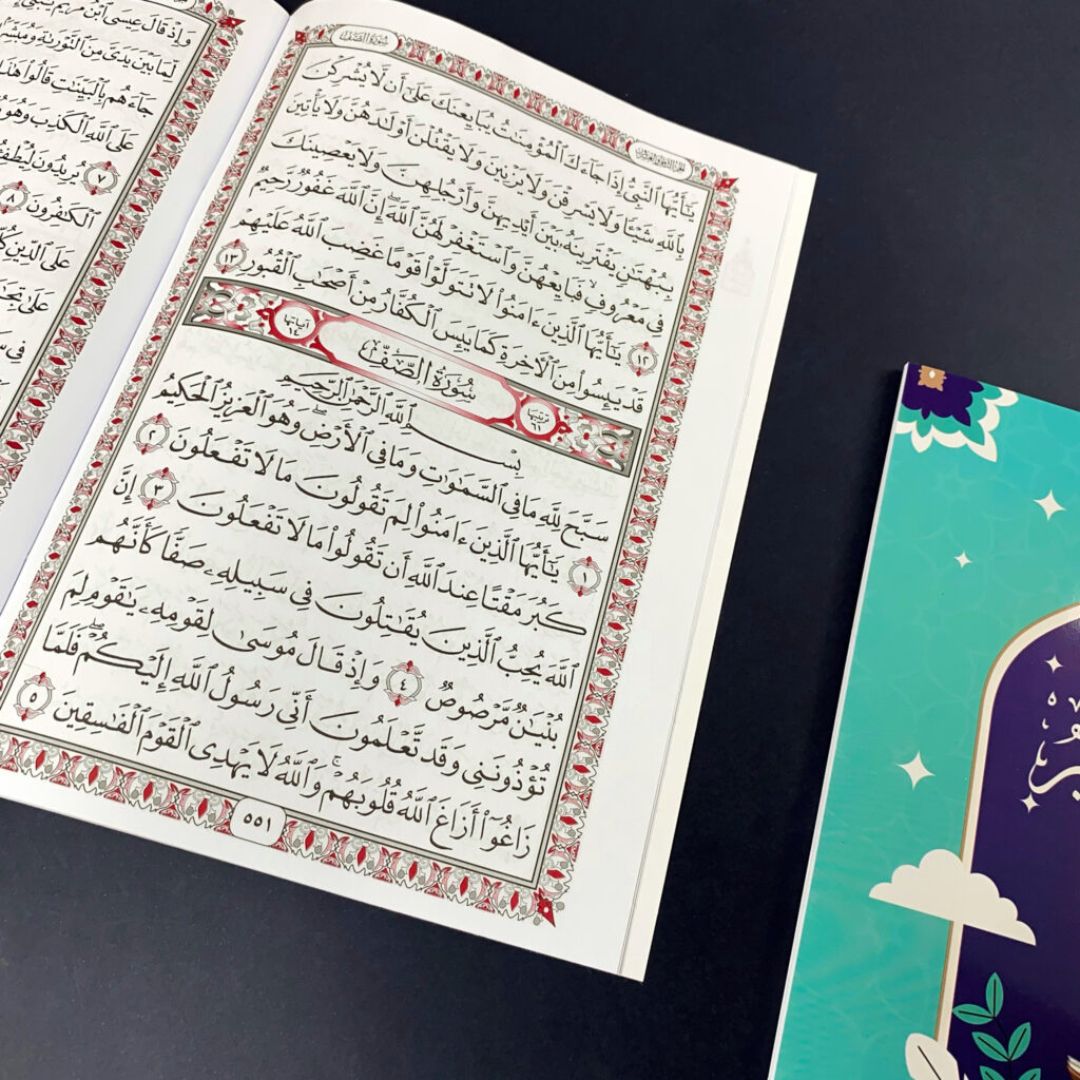 سُورَةُ الصَّفِّ
الجُزْءُ الثَّامِنُ وَالعِشْرُونَ
يَٰٓأَيُّهَا ٱلنَّبِيُّ إِذَا جَآءَكَ ٱلْمُؤْمِنَٰتُ يُبَايِعْنَكَ عَلَىٰٓ أَن لَّا يُشْرِكْنَ
بِٱللَّهِ شَيْـًٔا وَلَا يَسْرِقْنَ وَلَا يَزْنِينَ وَلَا يَقْتُلْنَ أَوْلَٰدَهُنَّ وَلَا يَأْتِينَ
بِبُهْتَٰنٍ يَفْتَرِينَهُۥ بَيْنَ أَيْدِيهِنَّ وَأَرْجُلِهِنَّ وَلَا يَعْصِينَكَ
فِى مَعْرُوفٍ فَبَايِعْهُنَّ وَٱسْتَغْفِرْ لَهُنَّ ٱللَّهَ إِنَّ ٱللَّهَ غَفُورٌ رَّحِيمٌ
١٢ يَٰٓأَيُّهَا ٱلَّذِينَ ءَامَنُوا۟ لَا تَتَوَلَّوْا۟ قَوْمًا غَضِبَ ٱللَّهُ عَلَيْهِمْ
قَدْ يَئِسُوا۟ مِنَ ٱلْءَاخِرَةِ كَمَا يَئِسَ ٱلْكُفَّارُ مِنْ أَصْحَٰبِ ٱلْقُبُورِ ١٣
ترتيبها ٦١ سُورَةُ الصَّفِّ آياتها ١٤
بِسْمِ ٱللَّهِ ٱلرَّحْمَٰنِ ٱلرَّحِيمِ
سَبَّحَ لِلَّهِ مَا فِى ٱلسَّمَٰوَٰتِ وَمَا فِى ٱلْأَرْضِ وَهُوَ ٱلْعَزِيزُ ٱلْحَكِيمُ
١ يَٰٓأَيُّهَا ٱلَّذِينَ ءَامَنُوا۟ لِمَ تَقُولُونَ مَا لَا تَفْعَلُونَ ٢
كَبُرَ مَقْتًا عِندَ ٱللَّهِ أَن تَقُولُوا۟ مَا لَا تَفْعَلُونَ ٣ إِنَّ
ٱللَّهَ يُحِبُّ ٱلَّذِينَ يُقَٰتِلُونَ فِى سَبِيلِهِۦ صَفًّا كَأَنَّهُم
بُنْيَٰنٌ مَّرْصُوصٌ ٤ وَإِذْ قَالَ مُوسَىٰ لِقَوْمِهِۦ يَٰقَوْمِ لِمَ
تُؤْذُونَنِى وَقَد تَّعْلَمُونَ أَنِّى رَسُولُ ٱللَّهِ إِلَيْكُمْ فَلَمَّا
زَاغُوٓا۟ أَزَاغَ ٱللَّهُ قُلُوبَهُمْ وَٱللَّهُ لَا يَهْدِى ٱلْقَوْمَ ٱلْفَٰسِقِينَ ٥
٥٥١
وَإِذْ قَالَ عِيسَى ٱبْنُ مَرْيَمَ يَٰبَنِىٓ
لِّمَا بَيْنَ يَدَىَّ مِنَ ٱلتَّوْرَىٰةِ وَمُبَشِّرًۢا
جَآءَهُم بِٱلْبَيِّنَٰتِ قَالُوا۟ هَٰذَا
عَلَى ٱللَّهِ ٱلْكَذِبَ وَهُوَ
٧ يُرِيدُونَ لِيُطْفِـُٔوا۟
ٱلْكَٰفِرُونَ ٨
عَلَى ٱلدِّينِ كُلِّهِ
عَلَىٰ تِجَٰرَةٍ
فِى